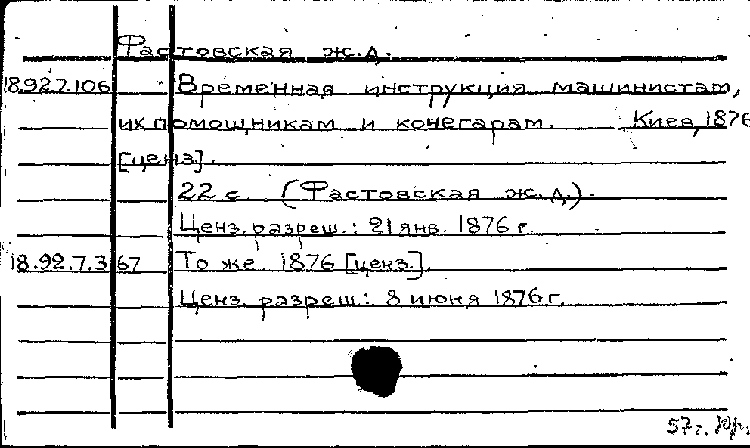 Фастовская ж.д.
18.92.7.106 Временная инструкция машинистам,
их помощникам и кочегарам. Киев, 1876
[ценз].
22 с. (Фастовская ж.д.).
Ценз. разреш.: 21 янв. 1876 г.
18.92.7.367 То же 1876 [ценз.].
Ценз. разреш.: 8 июня 1876 г.
57 г.